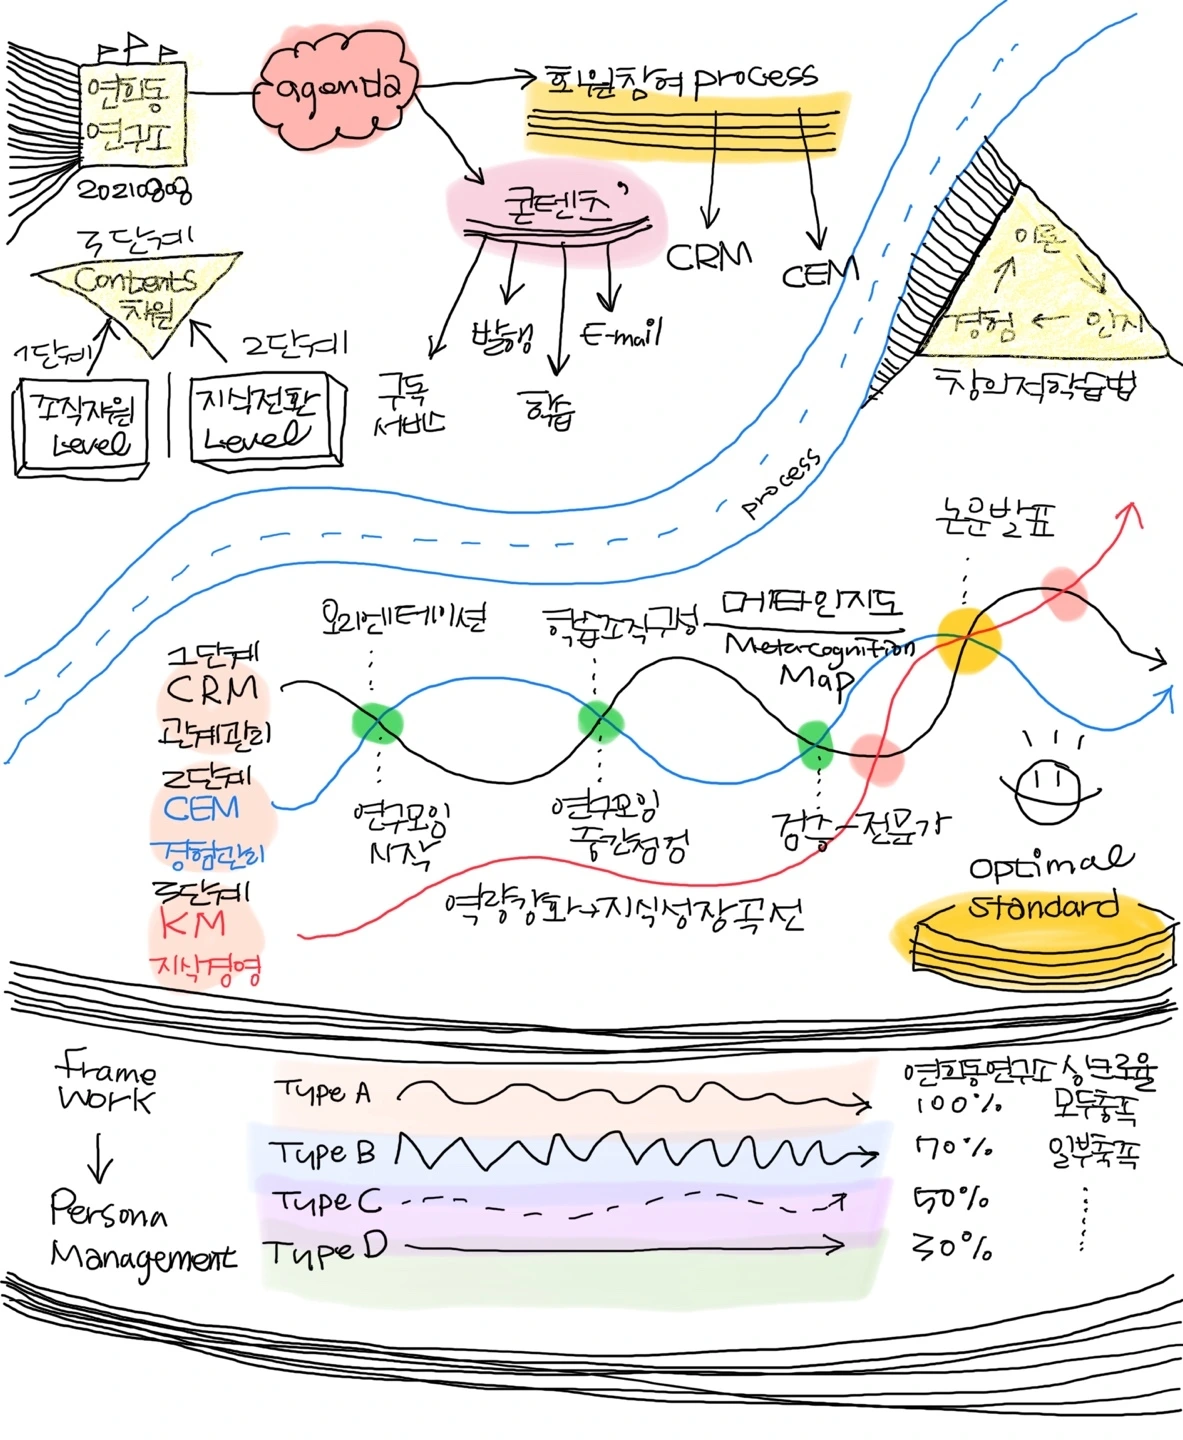 연희동
연구소
20210808
agenda
회원참여 process
CRM
CEM
콘텐츠,
구독
서비스
발행
학습
E-mail
3단계
Contents
차원
1단계
2단계
조직차원
Level
지식전환
Level
이론
경험 ← 인지
창의적학습법
process
논문발표
오리엔테이션
학습조직구성
메타인지도
Metacognition
Map
1단계
CRM
관계관리
2단계
CEM
경험관리
3단계
KM
지식경영
연구모임
시작
연구모임
중간점검
검증-전문가
역량강화→지식성장곡선
optimal
standard
Frame
work
Persona
Management
Type A
Type B
Type C
Type D
연희동연구소 싱크로율
100% 모두충족
70% 일부충족
50%
30%